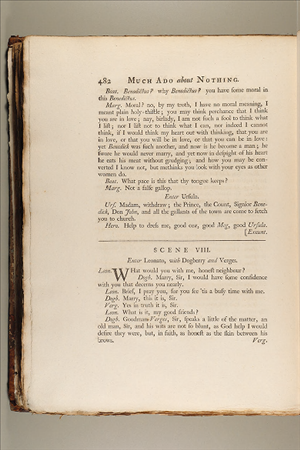 482 MUCH ADO about NOTHING.
Beat. Benedictus? why Benedictus? you have some moral in
this Benedictus.
Marg. Moral? no, by my troth, I have no moral meaning, I
meant plain holy-thistle; you may think perchance that I think
you are in love; nay, birlady, I am not such a fool to think what
I list; nor I list not to think what I can, nor indeed I cannot
think, if I would think my heart out with thinking, that you are
in love, or that you will be in love, or that you can be in love:
yet Benedick was such another, and now is he become a man; he
swore he would never marry, and yet now in despight of his heart
he eats his meat without grudging; and how you may be con-
verted I know not, but methinks you look with your eyes as other
women do.
Beat. What pace is this that thy tongue keeps?
Marg. Not a false gallop.
Enter Ursula.
Urs. Madam, withdraw; the Prince, the Count, Signior Bene-
dick, Don John, and all the gallants of the town are come to fetch
you to church.
Hero. Help to dress me, good coz, good Meg, good Ursula.
[Exeunt.
SCENE VIII.
Enter Leonato, with Dogberry and Verges.
Leon. WHat would you with me, honest neighbour?
Dogb. Marry, Sir, I would have some confidence
with you that decerns you nearly.
Leon. Brief, I pray you, for you see 'tis a busy time with me.
Dogb. Marry, this it is, Sir.
Verg. Yes in truth it is, Sir.
Leon. What is it, my good friends?
Dogb. Goodman Verges, Sir, speaks a little of the matter, an
old man, Sir, and his wits are not so blunt, as God help I would
desire they were, but, in faith, as honest as the skin between his
brows.
Verg.